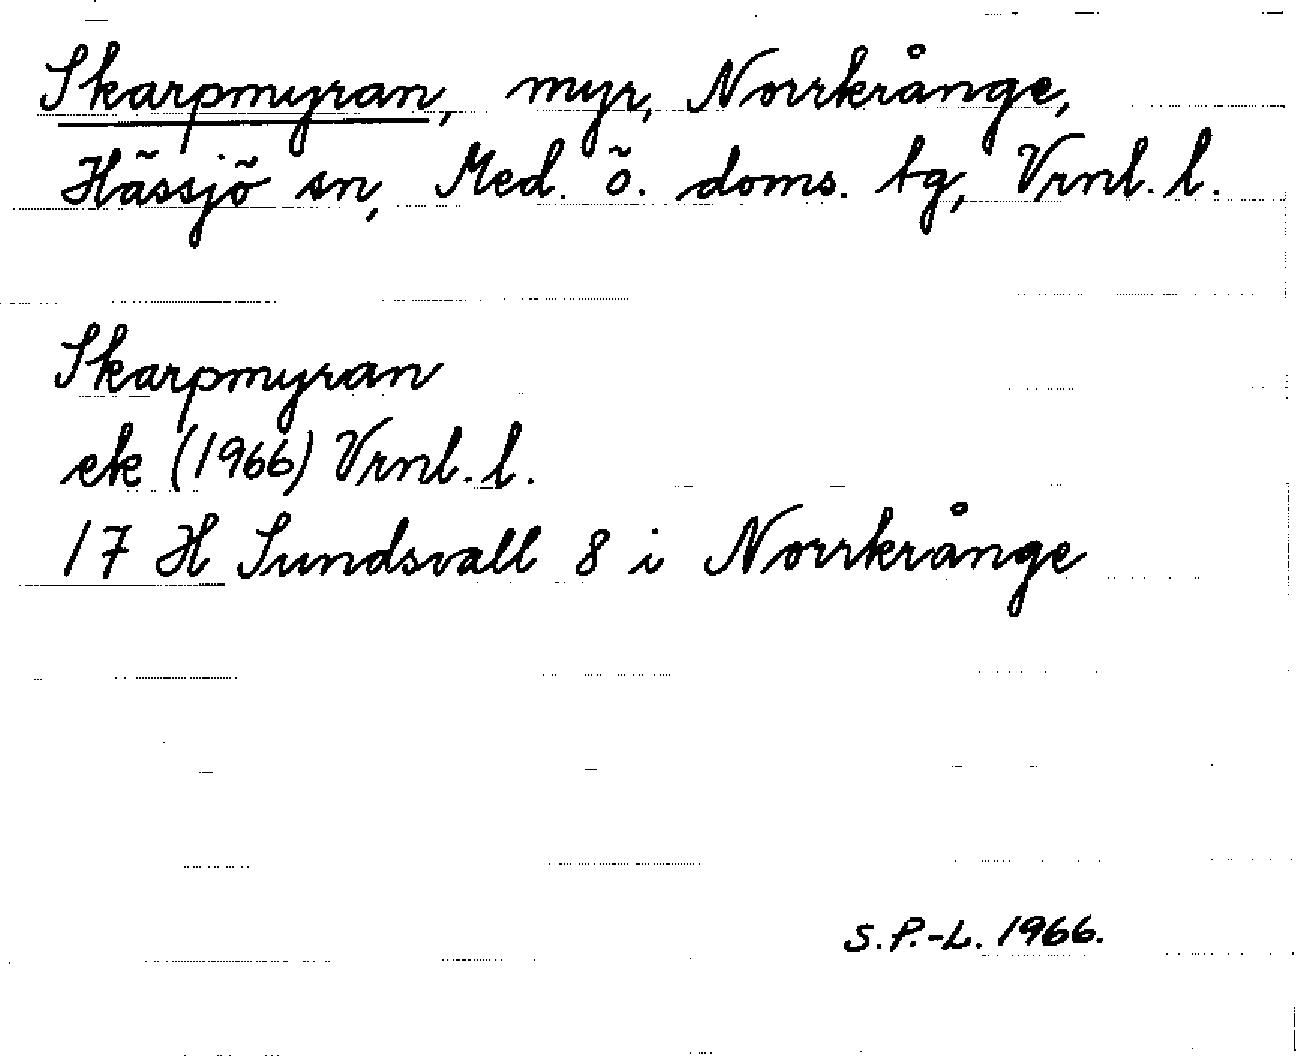 Skarpmyran, myr, Norrkrånge,
Hässjö sn, Med. ö. doms. tg, Vrnl. l.
Skarpmyran
ek (1966) Vrnl. l.
17 H Sundsvall 8 i Norrkrånge
S.P.-L. 1966.